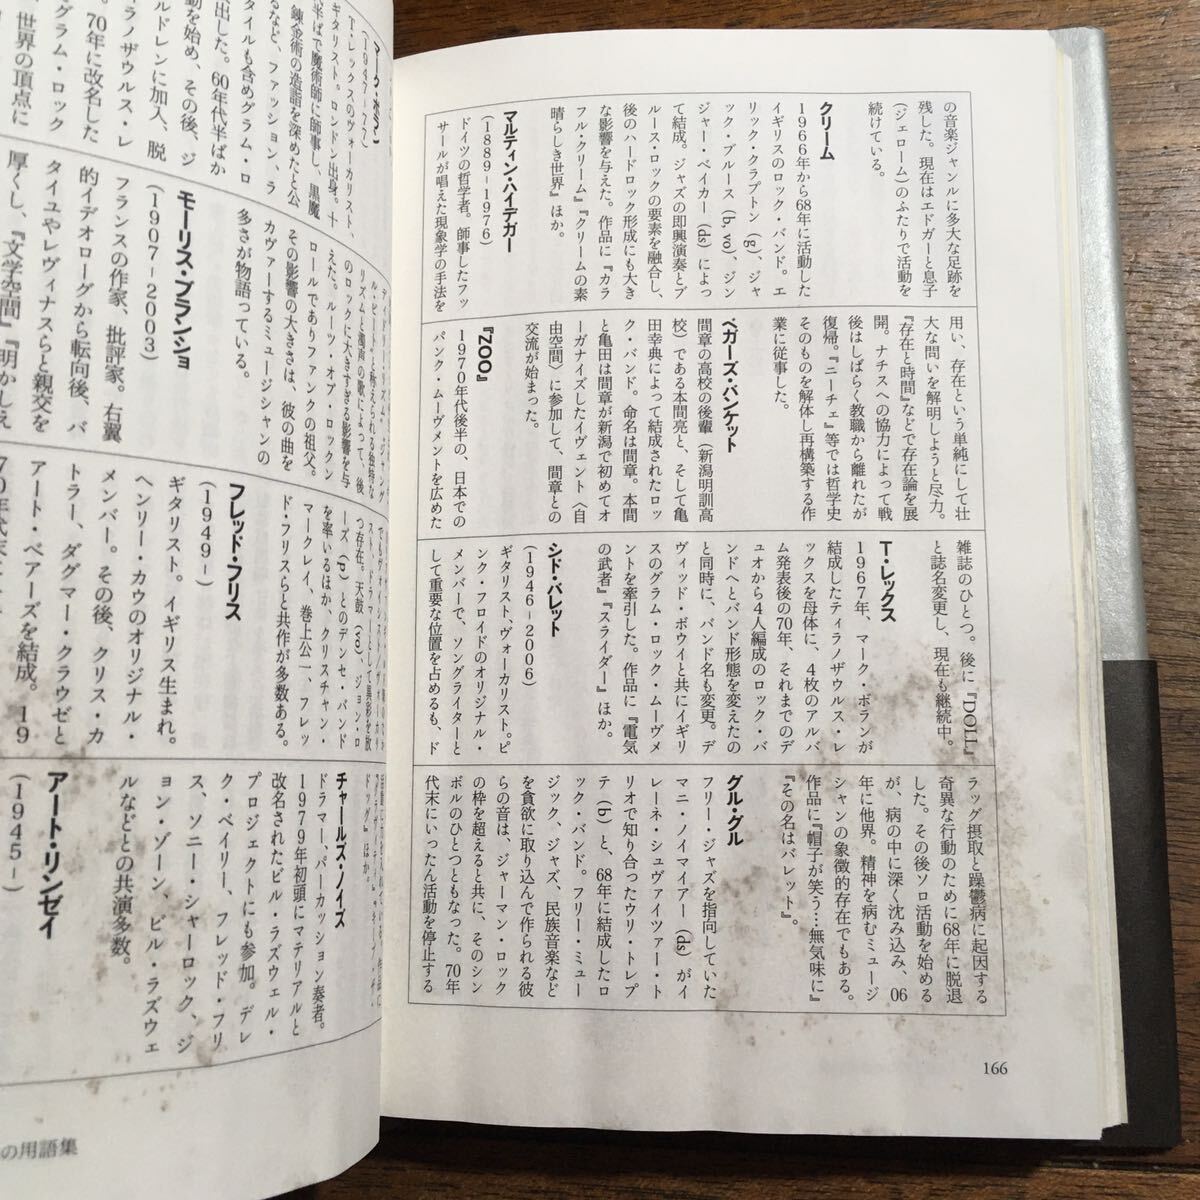 の音楽ジャンルに多大な足跡を
残した。現在はエドガーと息子
(ジェローム)のふたりで活動を
続けている。
クリーム
1966年から68年に活動した
イギリスのロック・バンド。エ
リック・クラプトン(g)、ジャ
ック・ブルース(b, vo)、ジン
ジャー・ベイカー(ds)によっ
て結成。ジャズの即興演奏とブ
ルース・ロックの要素を融合し、
後のハードロック形成にも大き
な影響を与えた。作品に『カラ
フル・クリーム』『クリームの素
晴らしき世界』ほか。
マルティン・ハイデガー
(1889-1976)
ドイツの哲学者。師事したフッ
サールが唱えた現象学の手法を
用い、存在という単純にして壮
大な問いを解明しようと尽力。
『存在と時間』などで存在論を展
開。ナチスへの協力によって戦
後はしばらく教職から離れたが
復帰。『ニーチェ』等では哲学史
そのものを解体し再構築する作
業に従事した。
ベガーズ・バンケット
間章の高校の後輩(新潟明訓高
校)である本間亮と、そして亀
田幸典によって結成されたロッ
ク・バンド。命名は間章。本間
と亀田は間章が新潟で初めてオ
ーガナイズしたイヴェント〈自
由空間〉に参加して、間章との
交流が始まった。
『ZOO』
1970年代後半の、日本での
パンク・ムーヴメントを広めた
雑誌のひとつ。後に『DOLL』
と誌名変更し、現在も継続中。
T・レックス
1967年、マーク・ボランが
結成したティラノザウルス・レ
ックスを母体に、4枚のアルバ
ム発表後の70年、それまでのデ
ュオから4人編成のロック・バ
ンドへとバンド形態を変えたの
と同時に、バンド名も変更。デ
ヴィッド・ボウイと共にイギリ
スのグラム・ロック・ムーヴメ
ントを牽引した。作品に『電気
の武者』『スライダー』ほか。
シド・バレット
(1946-2006)
ギタリスト、ヴォーカリスト。ピ
ンク・フロイドのオリジナル・
メンバーで、ソングライターと
して重要な位置を占めるも、ド
ラッグ摂取と躁鬱病に起因する
奇異な行動のために68年に脱退
した。その後ソロ活動を始める
が、病の中に深く沈み込み、06
年に他界。精神を病むミュージ
シャンの象徴的存在でもある。
作品に『帽子が笑う…無気味に』
『その名はバレット』。
グル・グル
フリー・ジャズを指向していた
マニ・ノイマイアー(ds)がイ
レーネ・シュヴァイツァー・ト
リオで知り合ったウリ・トレプ
テ(b)と、68年に結成したロ
ック・バンド。フリー・ミュー
ジック、ジャズ、民族音楽など
を貪欲に取り込んで作られる彼
らの音は、ジャーマン・ロック
の枠を超えると共に、そのシン
ボルのひとつともなった。70年
代末にいったん活動を停止する
166
マーク・ボラン
(1947-77)
T・レックスのヴォーカリスト、
ギタリスト。ロンドン出身。十
半ばで魔術師に師事し、黒魔
錬金術の造詣を深めたと公
るなど、ファッション、ラ
タイルも含めグラム・ロ
出した。60年代半ばか
動を始め、その後、ジ
ルドレンに加入、脱
ラノザウルス・レ
70年に改名した
グラム・ロック
世界の頂点に
リズムと濁声の歌によって、後
のロックに大きすぎる影響を与
えた。ルーツ・オブ・ロックン
ロールでありファンクの祖父。
その影響の大きさは、彼の曲を
カヴァーするミュージシャンの
多さが物語っている。
モーリス・ブランショ
(1907-2003)
フランスの作家、批評家。右翼
的イデオローグから転向後、バ
タイユやレヴィナスらと親交を
厚くし、『文学空間』『明かしえ
スト、ドラマーとして異彩を放
つ存在。天鼓(vo)、ジョン・ロ
ーズ(p)とのデンセ・バンド
を率いるほか、クリスチャン・
マークレイ、巻上公一、フレッ
ド・フリスらと共作が多数ある。
フレッド・フリス
(1949-)
ギタリスト。イギリス生まれ。
ヘンリー・カウのオリジナル・
メンバー。その後、クリス・カ
トラー、ダグマー・クラウゼと
アート・ベアーズを結成。19
ドッグ』ほか。
チャールズ・ノイズ
ドラマー、パーカッション奏者。
1979年初頭にマテリアルと
改名されたビル・ラズウェル・
プロジェクトにも参加。デレ
ク・ベイリー、フレッド・フリ
ス、ソニー・シャーロック、ジ
ョン・ゾーン、ビル・ラズウェ
ルなどとの共演多数。
アート・リンゼイ
(1945-)
の用語集